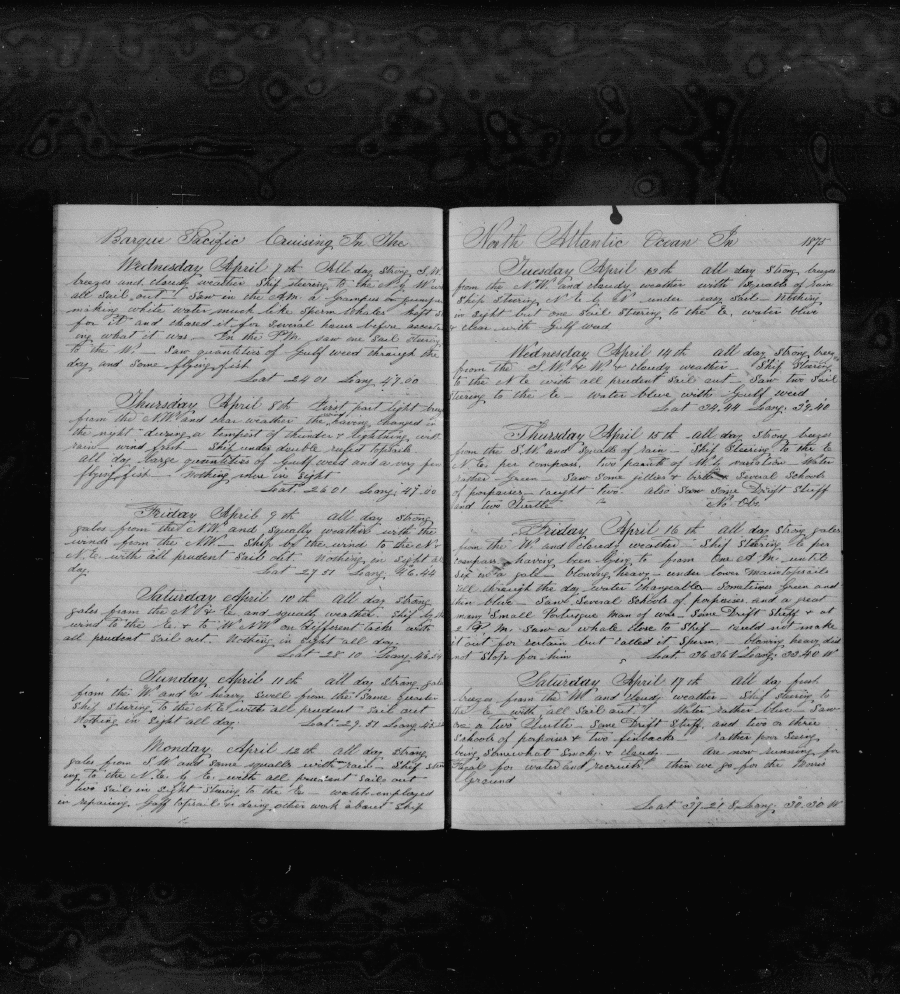 Barque Pacific Cruising In The
Wednesday April 7th All day strong S.W.
breezes and cloudy weather Ship steering to the N.E.
all Sail out Saw in the A.M. a Grampus or
making white water much like Sperm Whales
for it and chased it for Several hours before
ing what it was In the P.M. saw one Sail Steering
to the W. Saw quantities of Gulf weed through the
day and some flying fish
Lat 24 01 Long 47.00
Thursday April 8th first part light
from the N.W. and clear weather the having changed in
the night during a tempest of thunder & lightning, with
rain wind fresh Ship under double reefed topsails
all day Large quantities of Gulf weed and a very few
flying fish Nothing more in sight
Lat. 26 01 Long; 47.00
Friday April 9th all day strong
gales from the NW and squally weather with the
winds from the NW Ship by the wind to the N &
N.E. with all prudent Sail out Nothing in sight all
day. Lat 27 51 Long 46.44
Saturday April 10th all day strong
gales from the N. & E. and squally weather. Ship by the
wind to the E. & to W.NW on different tacks with
all prudent Sail out Nothing in sight all day
Lat 28 10 Long 46.
Sunday April 11th all day strong gales
from the W and a heavy swell from the same quarter
Ship steering to the N.E. with all prudent sail out
Nothing in sight all day. Lat. 29.51 Long
Monday April 12th all day strong
gales from S.W and some squalls with rain Ship steer
ing to the N.E. by E. with all prudent Sails out
two sails in sight Steering to the E. watch employed
in repairing Gaff topsails & doing other work about Ship
North Atlantic Ocean In 1875
Tuesday April 13th all day strong breezes
from the N.W. and cloudy weather with Squalls of rain
Ship steering N.E. by N under easy sail Nothing
in sight but one Sail Steering to the E. water blue
& clear with Gulf weed
Wednesday April 14th all day strong breezes
from the S.W. & W. & cloudy weather Ship Steering
to the N.E. with all prudent Sail out Saw two Sail
Steering to the E. water blue with Gulf weed
Lat 34.44 Long; 39.40
Thursday April 15th all day Strong breezes
from the S.W. and Squalls of rain Ship Steering to the E
N.E. per compass, two points of W.ly variation Water
rather Green Saw Some jellies & birds Several Schools
of porpoises caught two. also Saw Some Drift Stuff
and two Turtle No Obs.
Friday April 16th all day strong gales
from the W and cloudy weather Ship Steering E. per
compass, having been lying to from One A.M. until
Six in a gale blowing heavy under lower maintopsails
all through the day water Changeable Sometimes Green and
then blue Saw Several Schools of porpoises and a great
many Small Portugese man of war Some Drift Stuff & at
2 P.M. Saw a whale close to Ship could not make
it out for certain but called it Sperm blowing heavy did
not Stop for him Lat. 36 36 Long; 33.40 W
Saturday April 17th all day fresh
breezes from the W and cloudy weather Ship steering to
the E with all Sail out Water rather blue Saw
one or two Turtle Some Drift Stuff, and two or three
Schools of porpoises & two finbacks rather poor Seeing
being Somewhat Smoky & cloudy are now running for
Fayal for water and recruits then we go for the
Ground
Lat 37.21 Long; 30.30 W